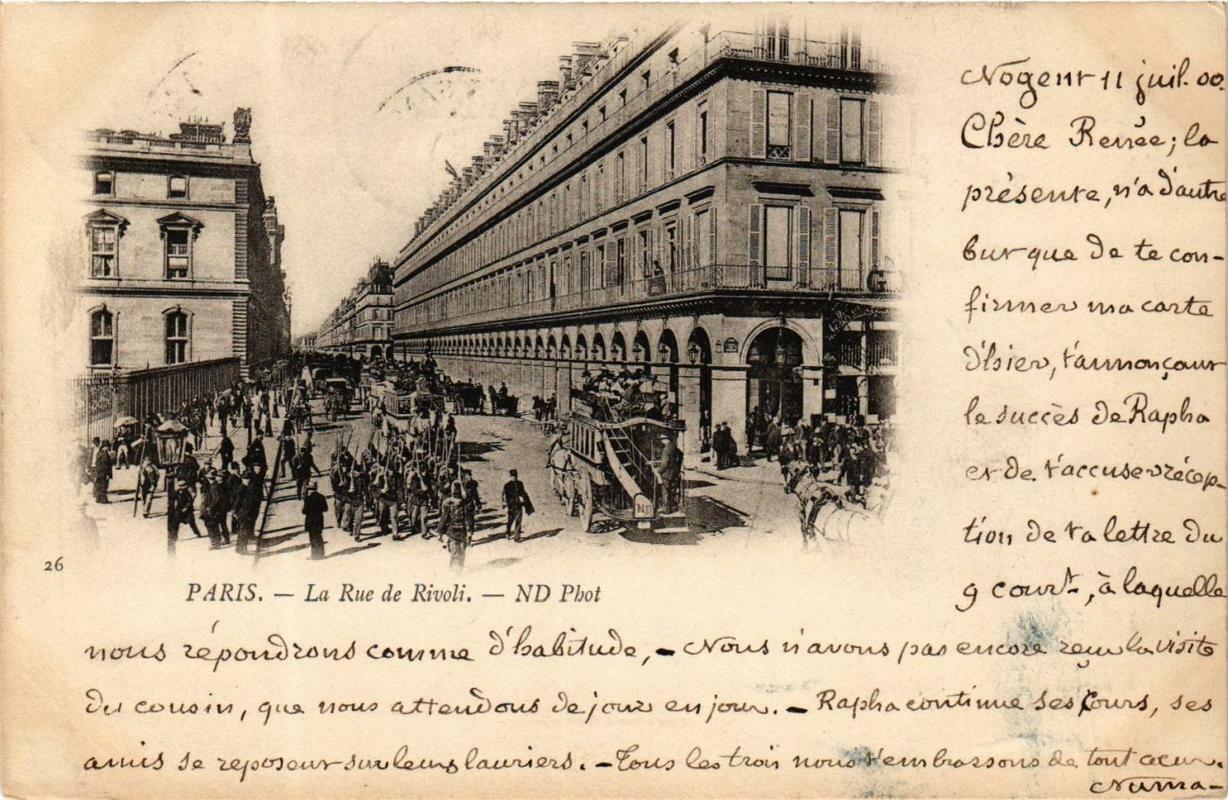 Nogent 11 juil. 00.
Chère Renée; la
présente, n'a d'autre
but que de te con-
firmer ma carte
d'hier, t'annonçant
le succès de Rapha
et de t'accuser récep-
tion de ta lettre du
9 court, à laquelle
nous répondrons comme d'habitude, - Nous n'avons pas encore reçu la visite
du cousin, que nous attendons de jour en jour. - Rapha continue ses cours, ses
amis se reposent sur leurs lauriers. - Tous les trois nous t'embrassons de tout cœur.
Numa-
26
PARIS. — La Rue de Rivoli. — ND Phot